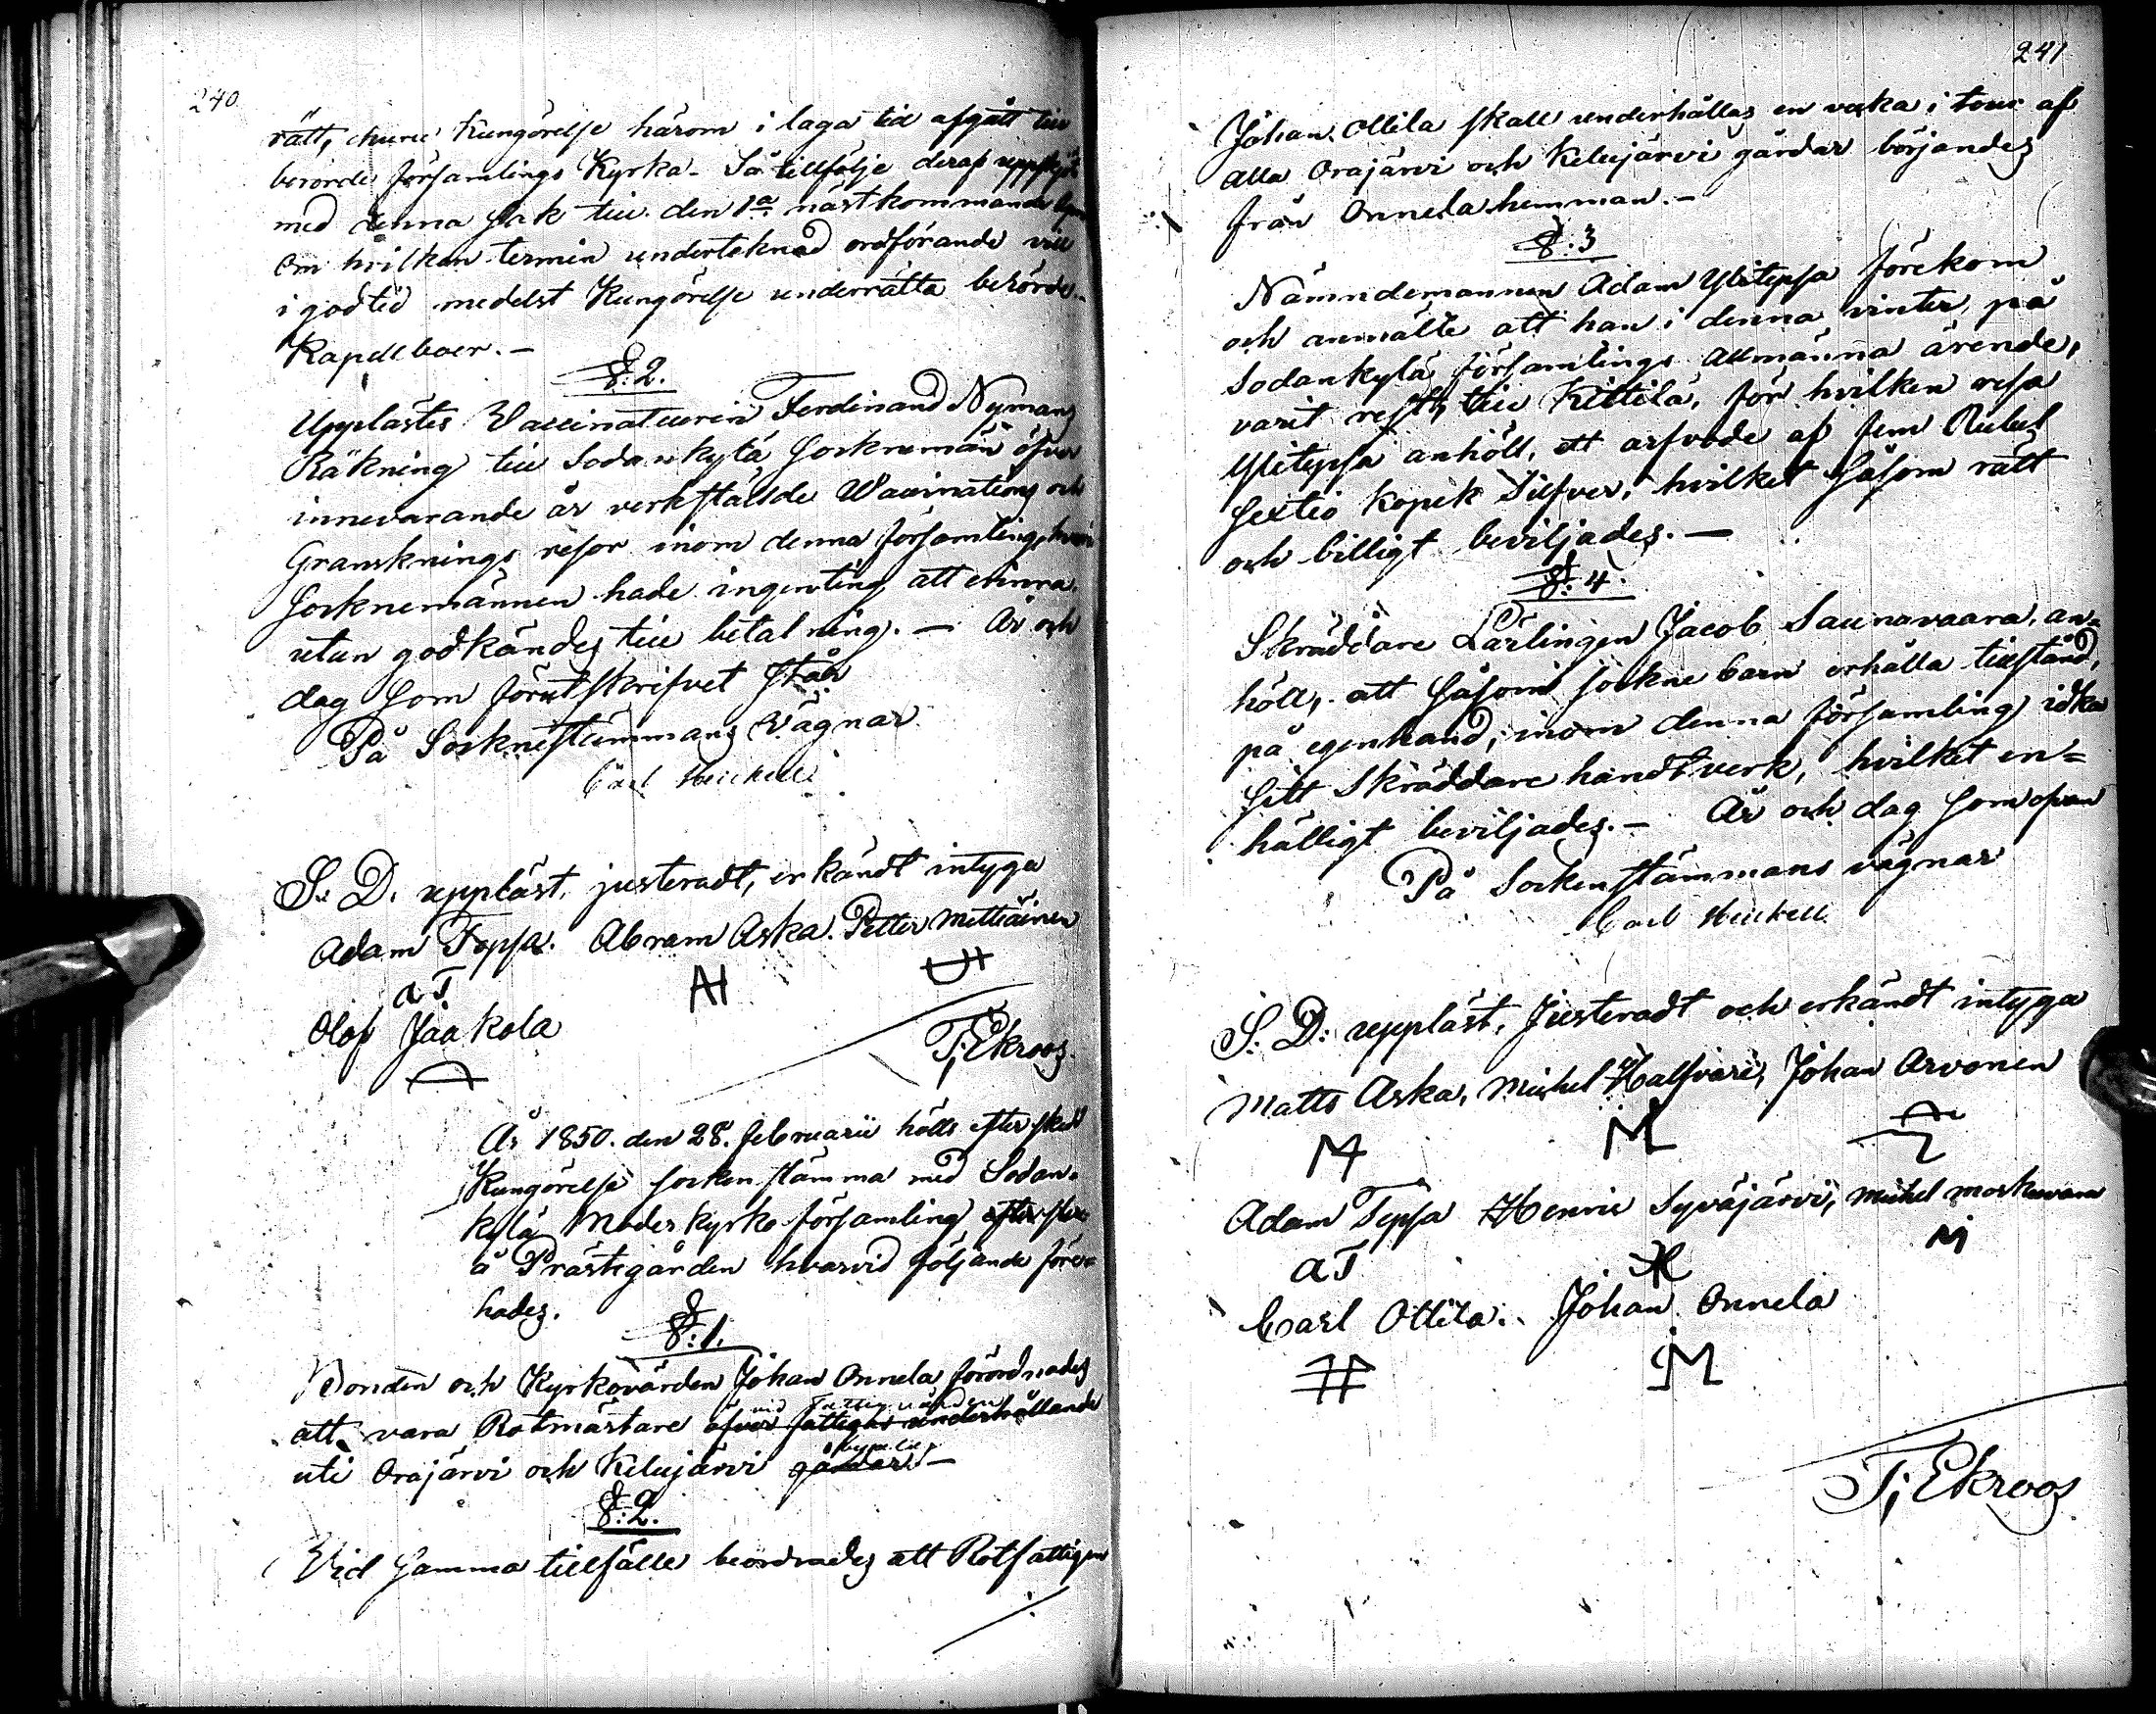 240.
rätt, ehuru Kungörelse härom i laga tid afgått till
berörde församlings Kyrka. Så tillfölje deraf uppskjöts
med denna sak till den 1a nästkommande
om hvilken termin undertecknad ordförande vill
i god tid medelst Kungörelse underrätta behörde
Kapellboer. –
§:2.
Upplästes Vaccinateuren Ferdinand Nymans
Räkning till Sodankylä Socknemän öfver
innevarande år verkställde Vaccinations och
Gransknings resor inom denna församling, hvari
Socknemännen hade ingenting att erinra
utan godkändes till betalning. – År och
dag som förutskrifvet står
På Sockneståmmans Vägnar
Carl Heickell
S. D. uppläst, justeradt, erkändt intyga
Adam Tepsa. Abram Aska. Petter Mettiäinen
A T AH
Olof Jaakola
T; Ekroos
År 1850. den 28. februarii hölls efter skedd
Kungörelse sockenstämma med Sodan-
kylä Moderkyrko församling
å Prästegården hvarvid följande före-
hades.
§:1.
Bonden och Kyrkovärden Johan Onnela förordnades
vid Fattigvården
att vara Rotmästare öfver fattigas underhållande
byalag
uti Orajärvi och Kelujärvi gårdar. –
§:2.
Vid samma tillfälle beordrades att Rotfattigen
./.
241
Johan Ollila skall underhållas en vecka i tour af
alla Orajärvi och Kelujärvi gårdar börjandes
från Onnela hemman. –
§:3
Nämndemannen Adam Ylitepsa förekom
och anmälte att han i denna vinter, på
Sodankylä församlings allmänna ärende,
varit rest till Kittilä, för hvilken resa
Ylitepsa anhöll, ett arfvode af fem Rubel
sextio kopek Silfver, hvilket såsom rätt
och billigt beviljades. –
§:4.
Skräddare Lärlingen Jacob Saunavaara, an-
höll, att såsom sockne barn erhålla tillstånd,
på egenhand, inom denna församling idka
sitt skräddare handtverk, hvilket en-
hälligt beviljades. – År och dag som ofvan
På Sockenstämmans vägnar
Carl Heickell.
S. D: uppläst, Justeradt och erkändt intyga
Matts Aska, Michel Halfvari, Johan Arvonen
M M
Adam Tepsa Henric Syväjärvi, Michel Moskuvaara
A T H M
Carl Ollila. Johan Onnela
T; Ekroos